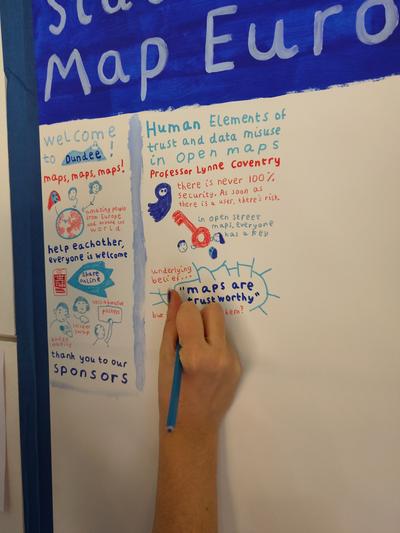 Map Euro
welcome
to Dundee!
maps, maps, maps!
amazing people
from Europe
and around the
world
help eachother,
everyone is welcome
share
online
collaborative
posters
sticker
swap
thank you to our
sponsors
Human Elements of
trust and data misuse
in open maps
Professor Lynne Coventry
there is never 100%
security. As soon as
there is a user, there's risk
in open street
maps, everyone
has a key
underlying
belief...
"maps are
trustworthy"